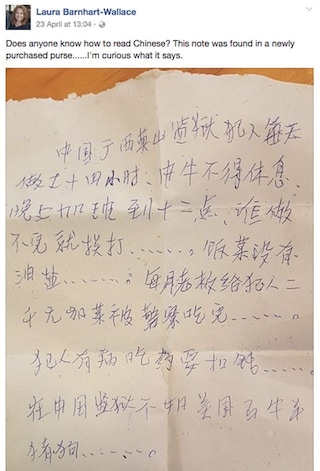 Laura Barnhart-Wallace
23 April at 13:04
Does anyone know how to read Chinese? This note was found in a newly
purchased purse......I'm curious what it says.
中国广西英山监狱犯人每天
做工十四小时、中午不得休息、
晚上加班到十二点、谁做
不完就挨打........。饭菜没有
油盐.......。每月老板给犯人二
千元加菜被警吃完........。
犯人有病吃药要扣钱.......。
在中国监狱不如美国百牛羊
猪狗........。